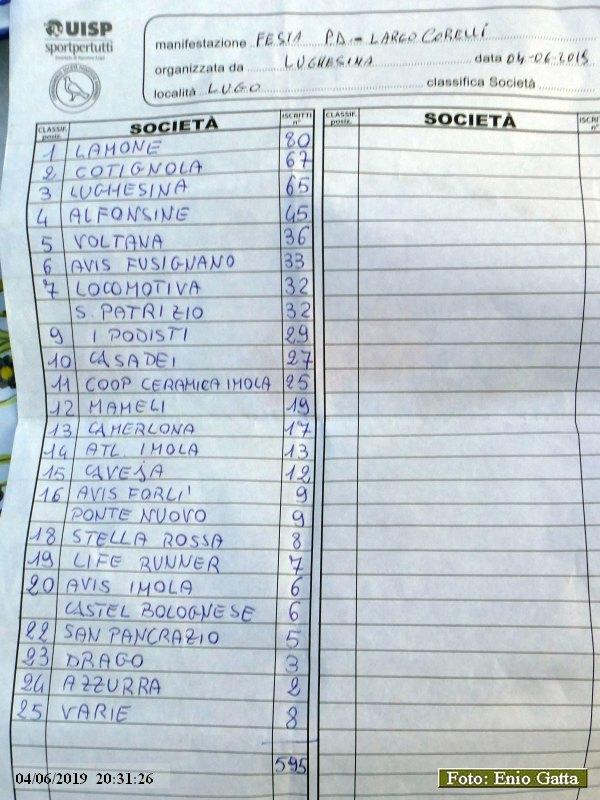 UISP
sportpertutti
manifestazione FESTA PD - LARGO CORELLI
organizzata da LUGHESINA data 04-06-2019
località LUGO classifica Società
CLASSIF. posiz. SOCIETÀ ISCRITTI n° CLASSIF. posiz. SOCIETÀ ISCRITTI n°
1 LAMONE 80
2 COTIGNOLA 67
3 LUGHESINA 65
4 ALFONSINE 45
5 VOLTANA 36
6 AVIS FUSIGNANO 33
7 LOCOMOTIVA 32
S. PATRIZIO 32
9 I PODISTI 29
10 CASADEI 27
11 COOP CERAMICA IMOLA 25
12 MAMELI 19
13 CAMERLONA 17
14 ATL. IMOLA 13
15 CAVEJA 12
16 AVIS FORLI' 9
PONTE NUOVO 9
18 STELLA ROSSA 8
19 LIFE RUNNER 7
20 AVIS IMOLA 6
CASTEL BOLOGNESE 6
22 SAN PANCRAZIO 5
23 DRAGO 3
24 AZZURRA 2
25 VARIE 8
595
04/06/2019 20:31:26
Foto: Enio Gatta